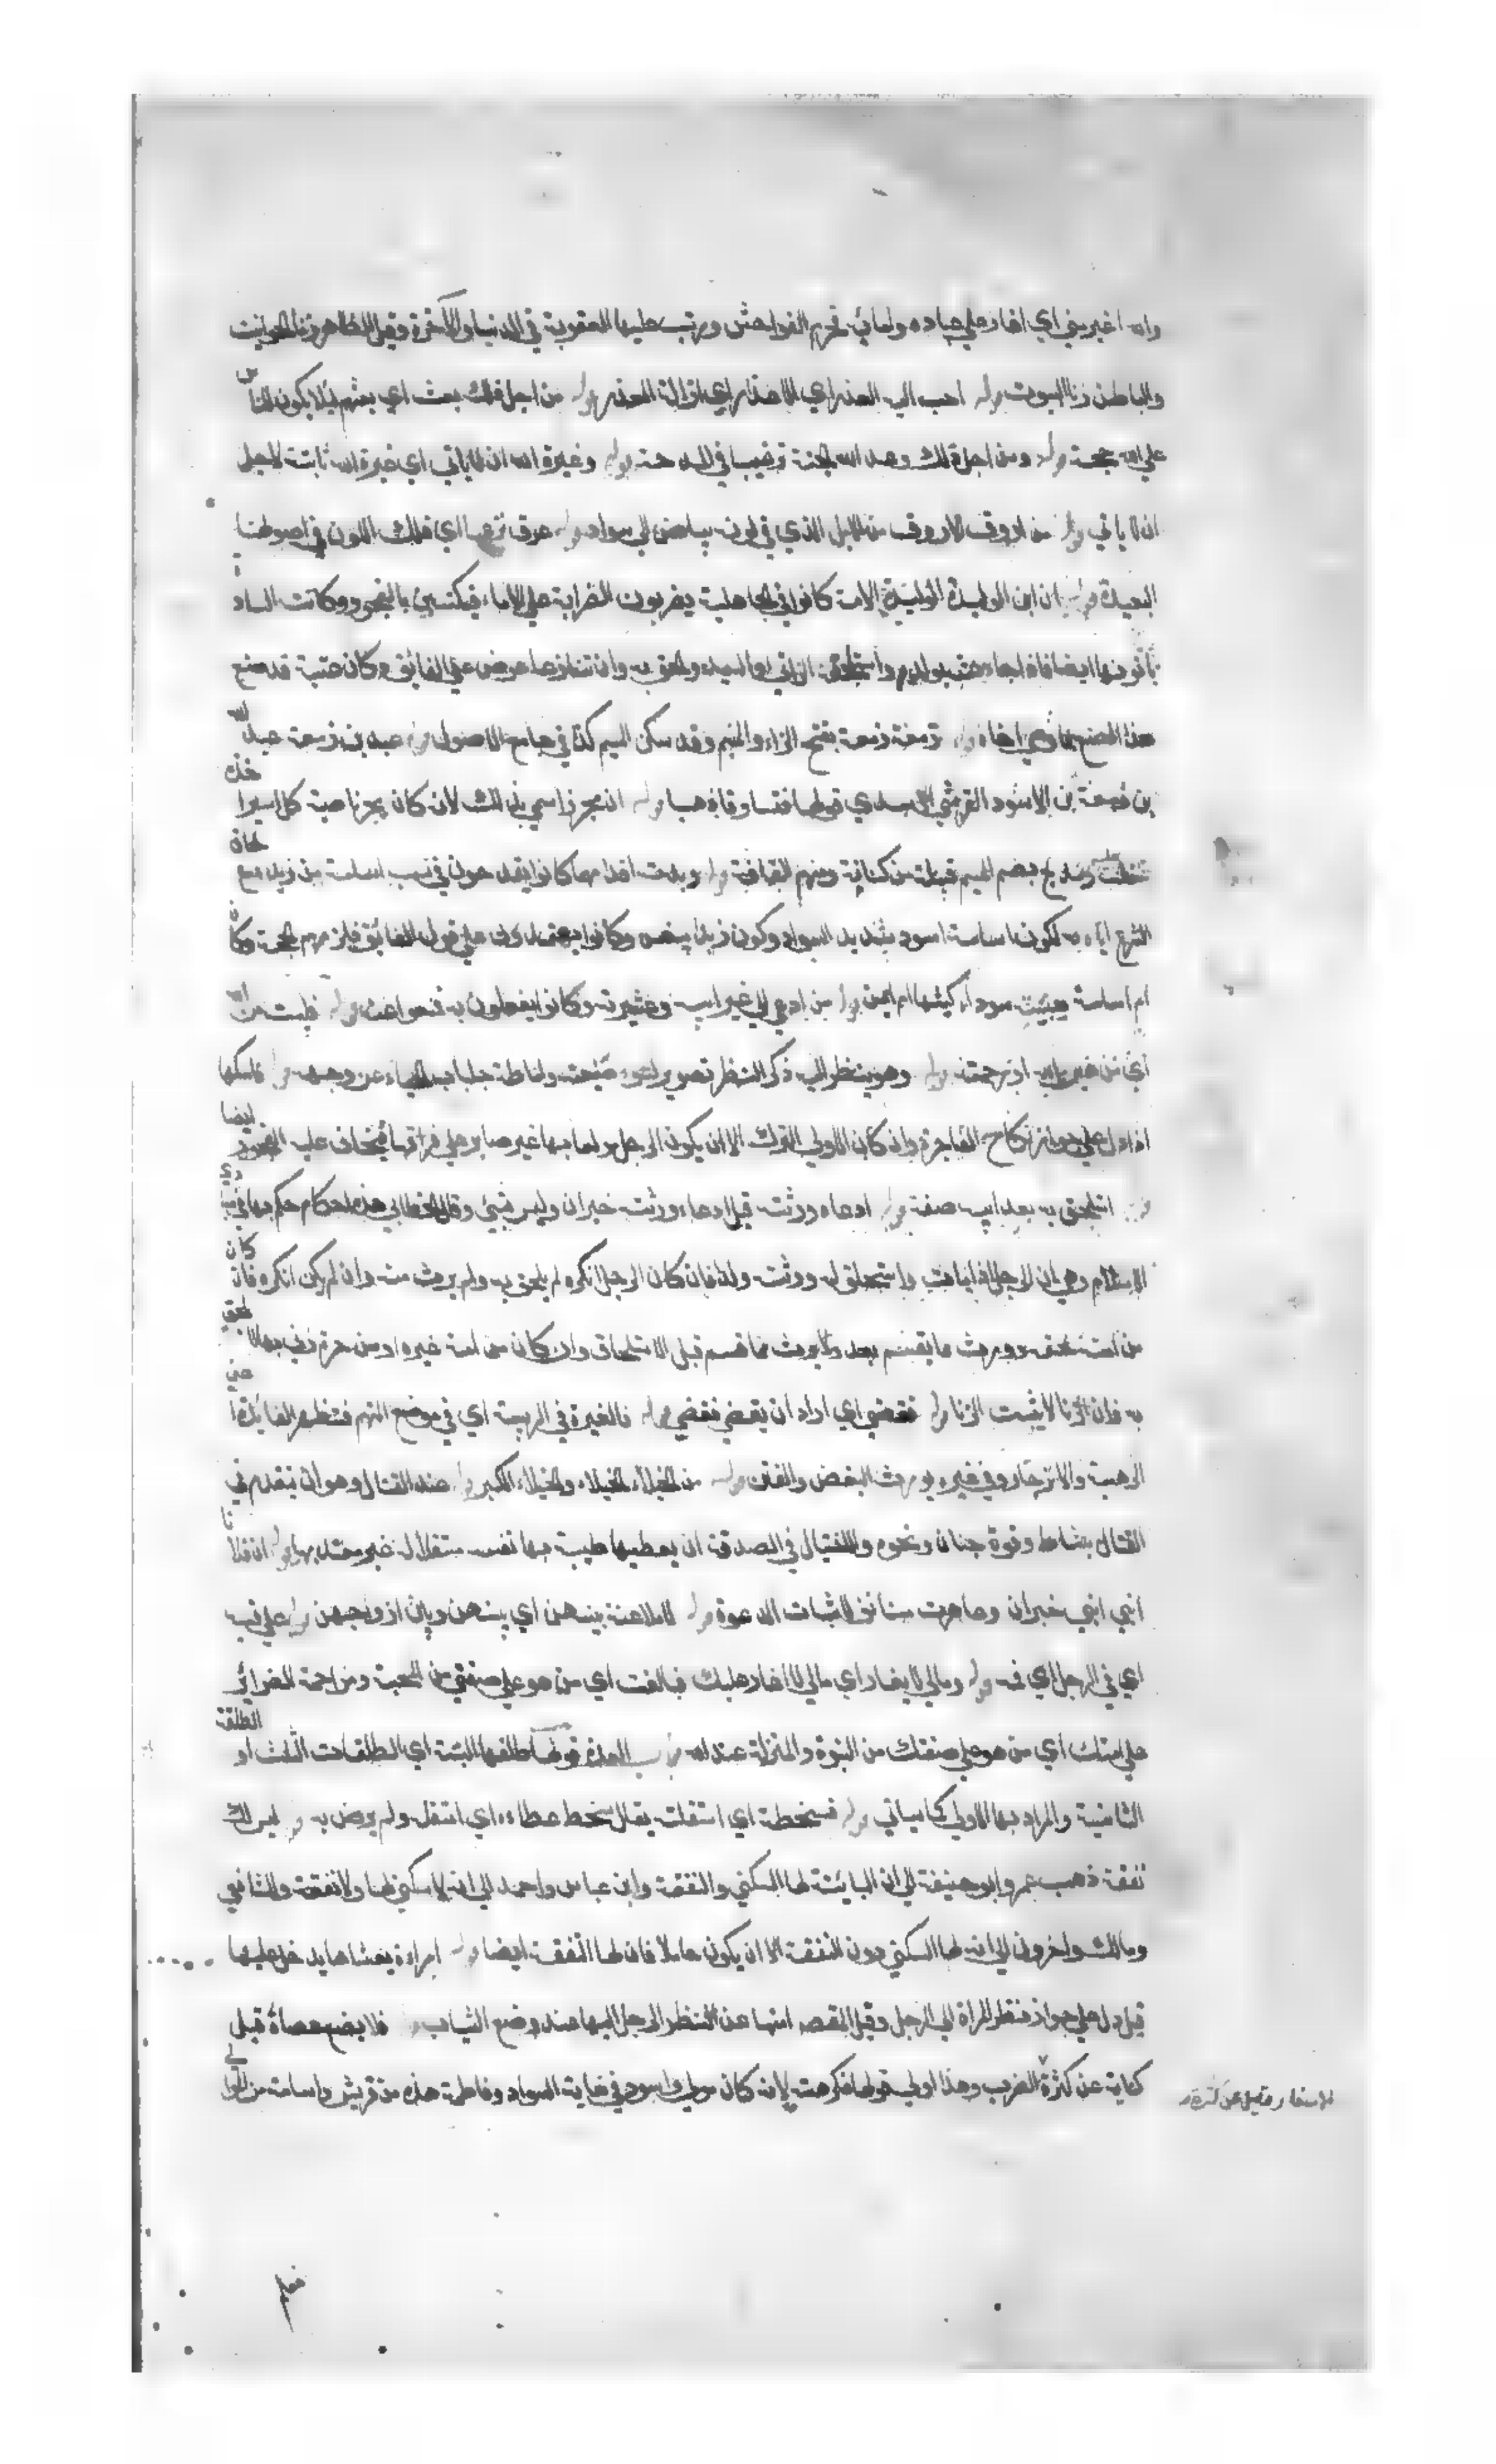 والله اغير مني اي اغار علي عباده ولهاني تحريم الفواحش ورتب عليها العقوبة في الدنيا والآخرة وقيل الظاهر زنا الحوانيت
والباطن زنا البيوت قوله احب اليه العذر اي الاعتذار اي ازالة العذر قوله من اجل ذلك بعث اي بعثهم لئلا يكون للناس
علي الله حجة قوله ومن اجل ذلك وعد الله الجنة ترغيبا في المدحة قوله وغيرة الله ان لا ياتي اي غيرة الله ثابتة لاجل
ان لا ياتي قوله من اورق الاورق من الابل الذي في لونه بياض الي سواد قوله عرق نزعها اي ذلك اللون في اصولها
البعيدة قوله ان ابن الوليدة الوليدة الامة كانوا في الجاهلية يضربون الضرابة علي الاماء فيكتسبن بالفجور وكانت السادة
ياتونها ايضا فاذا جاءت بولد واستلحقه الزاني او السيد ولحق به وان تنازعا عرض علي القائف وكان عتبة قد صنع
هذا الصنع اخاه قوله زمعة زمعة بفتح الزاء والميم وقد سكن الميم كذا في جامع الاصول قوله عبد بن زمعة عبد الله
بن زمعة بن الاسود القرشي الاسدي قولها فتساوقا ذهبا قوله ان مجززا سمي بذلك لانه كان يجز ناصية كل اسير اخذه
مدلج بضم الميم قبيلة من كنانة ومنهم القافة قوله وبدت اقدامهما كانوا يقدحون في نسب اسامة من زيد مع الحاق
الشرع اياه به لكون اسامة اسود شديد السواد وكون زيد ابيض وكانوا يعتمدون علي قول القائف فلزمهم الحجة وكان
ام اسامة حبشية سوداء كنيتها ام ايمن قوله من ادعي الي غير ابيه وعشيرته وكانوا يفعلون به فنهوا عنه قوله فليست من الله
اي من دين الله او رحمته قوله وهو ينظر اليه ذكر النظر تصوير لسوء صنيعته ولاماطة جلباب الحياء عن وجهه قوله فامسكها
اذا دل علي جواز نكاح الفاجرة وان كان الاولي الترك الا ان يكون الرجل مولعا بها غير صابر علي فراقها يخاف عليه الفجور ايضا
قوله استلحق به بعد ابيه صفة قوله ادعاه ورثته قيل ادعاه ورثته خبر ان وليس بشئ وقال الخطابي هذه احكام حكم بها في مبادي
الاسلام وهي ان الرجل اذا مات واستحلق له ورثته ولدا فان كان الرجل انكره لم يلحق به ولم يرث منه وان لم يكن انكره فان كان
من امته لحقه وورث ما يقسم بعد ولا يرث مما قسم قبل الاستلحاق وان كان من امة غيره او من حرة زني بها لا يلحق
به فان الزنا لا يثبت الزنا قوله فقضي اي اراد ان يقضي فقضي قوله فالغيرة في الريبة اي في موضع التهم فتظهر الفائدة اعني
الرهبة والانزجار وفي غيره يورث البغض والفتن قوله من الخيلاء الخيلاء والخيلاء الكبر قوله عند القتال وهو ان يتقدم في
القتال بنشاط وقوة جنان ونحوه والاختيال في الصدقة ان يعطيها طيبة بها نفسه مستقلا له غير معتد بها قوله ان فلانا
ابني ابني خبر ان وعاهرت ستانف لاثبات الدعوة قوله لا ملاعنة بينهن اي بينهن وبين ازواجهن قوله علي فيه
اي في الرجل اي فمه قوله ومالي لا يغار اي مالي لا اغار عليك فبالغت اي من هو علي صفتي من المحبة ومزاحمة الضرائر
علي مثلك اي من هو علي صفتك من النبوة والمنزلة عند الله باب العدة قولها طلقها البتة اي الطلقات الثلث او الطلقة
الثانية والمراد بها الاولي كما سياتي قوله فسخطته اي استقلت يقال سخط عطاءه اي استقل ولم يرض به قوله ليس لك
نفقة ذهب عمر وابو حنيفة الي ان البائنة لها السكني والنفقة وابن عباس واحمد الي انه لا سكني لها ولا نفقة والشافعي
ومالك واخرون الي انه لها السكني دون النفقة الا ان يكون حاملا فان لها النفقة ايضا قوله امراءة يغشاها يدخل عليها
قيل دل علي جواز نظر المراة الي الرجل وقيل المقصد امنها عن النظر الرجل اليها عند وضع الثياب قوله فلا يضع عصاه قيل
كناية عن كثرة الضرب وهذا اولي قولها فكرهته لانه كان مولي واسود في غاية السواد وفاطمة هذه من قريش واسامة من الموالي
الاسفار وقيل عن كثرة
فعلم